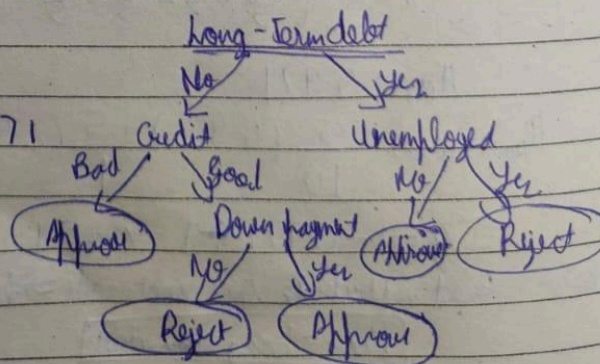 Long-Term debt
No Yes
71 Credit Unemployed
Bad Good No Yes
Approve Down payment Approve Reject
No Yes
Reject Approve